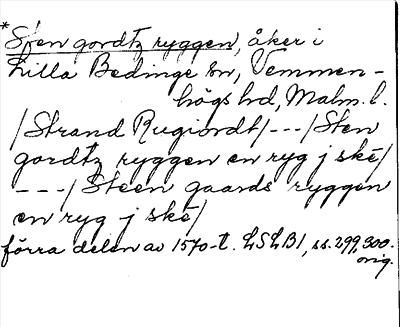 *Sten gordtz ryggen, åker i
Lilla Bedinge sn, Vemmen-
högs hd, Malm. l.
/Strand Rugiordt/---/Sten
gordtz ryggen en ryg j skē/
---/Steen gaards ryggen
en ryg j skē/
förra delen av 1570-t. LSLB1, ss. 299, 300.
orig.